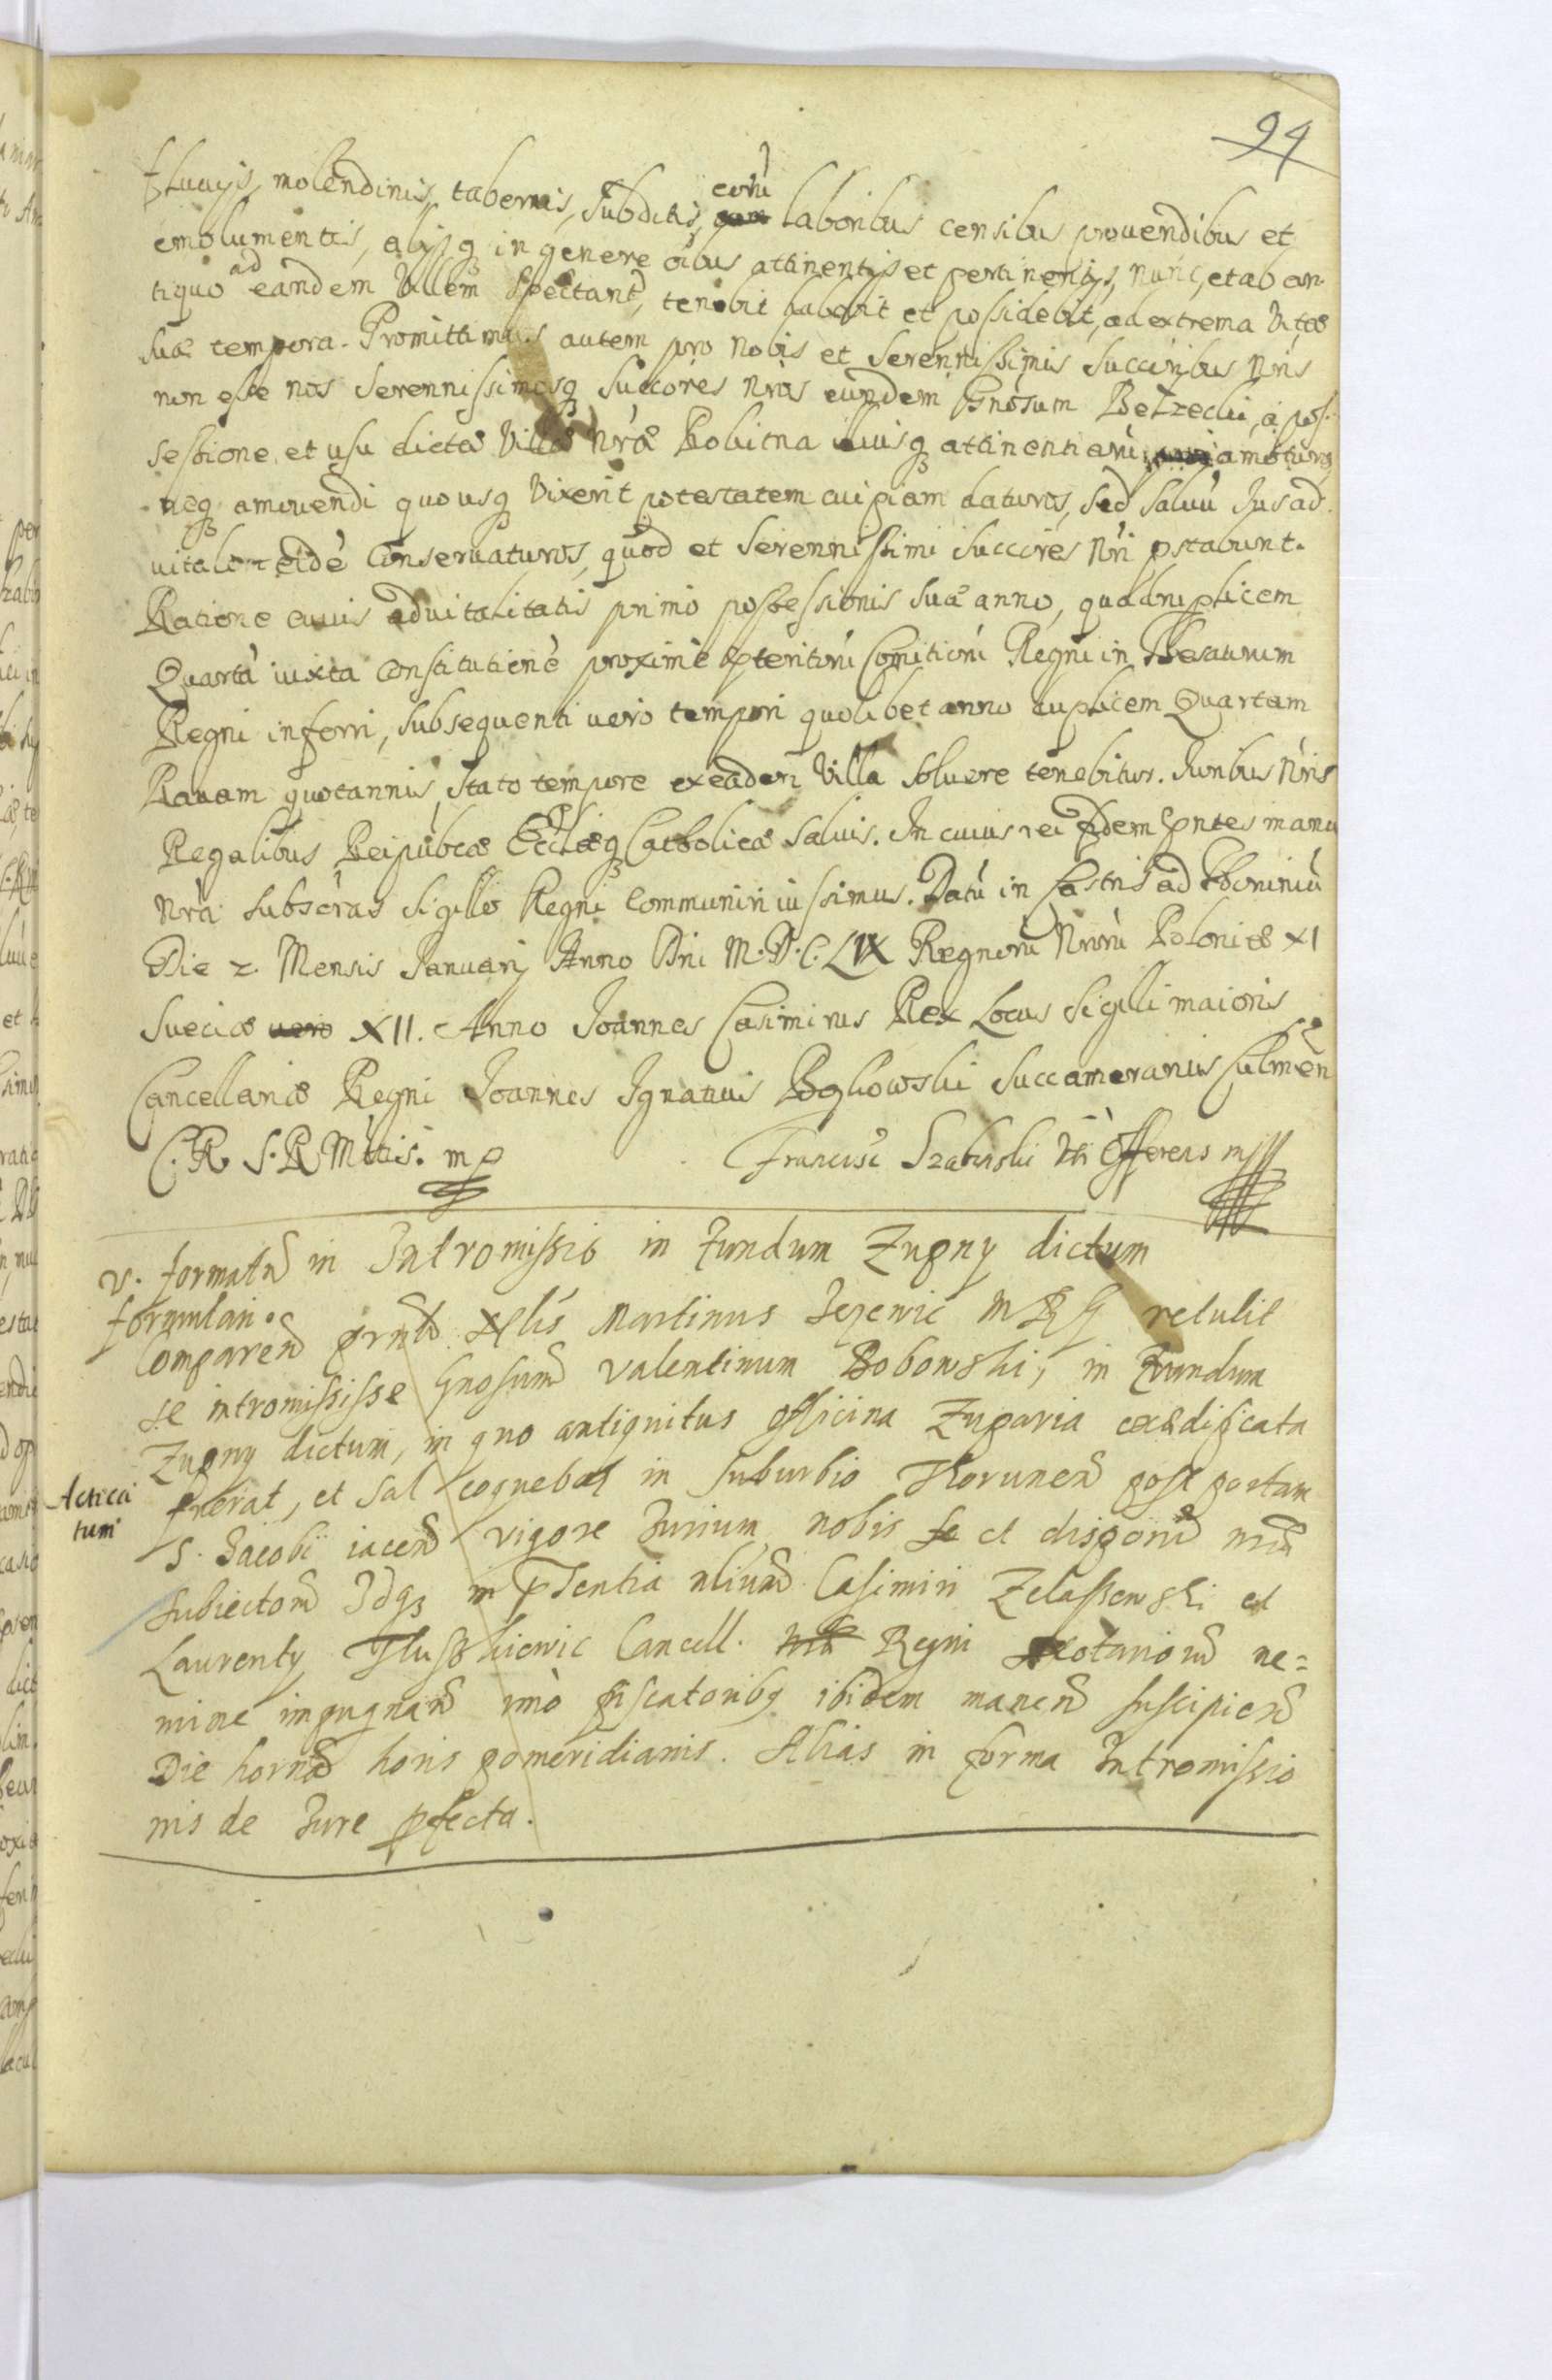 94
fluuijs, molendinis, tabernis, subditis, eorũ laboribus censibus prouendibus et
emolumentis, alijsq in genere oĩbus attinentijs et pertinentijs, nunc, et ab an-
tiquo ad eandem Villam spectant, tenebit habebit et possidebit, ad extrema Vitæ
suæ tempora. Promittimus autem pro nobis et Serennissimis Succribus Nris
non esse nos Serennissimosq Succores Nros eundem Gnosum Belzecki, à pos-
sessione et usu dictæ Villæ Nræ Robitna attinentiarũ amoturos
neq amouendi quousq Vixerit potestatem cuipiam daturos, sed saluũ Jus ad
vitale eidẽ Conseruaturos, quod et Serennissimi Succores Nri pstabunt.
Ratione cuius aduitalitatis primo possessionis suæ anno, quadruplicem
Quartã iuxta Constitutionẽ proximè pteritorũ Comitiorũ Regni in Thesaurum
Regni inferri, subsequenti uero tempori quolibet anno duplicem Quartam
Rauam quotannis, stato tempore ex eadem Villa soluere tenebitur. Juribus Nris
Regalibus Reipubcæ Ecclæq Catholicæ saluis. In cuius rei fidem pntes manu
Nrã subscras Sigillo Regni Communiri iussimus. Datũ in Castris ad Thoruniũ
Die 2. Mensis Januarij Anno Dni M.D.C.LIX Regnorũ Nrorũ Poloniæ XI
Sueciæ uero XII. Anno Joannes Casimirus Rex Locus Sigilli maioris
Cancellariæ Regni Joannes Ignatius Bąkowski Succamerarius Culmen
S.R.Mttis. mp
Offerens mp
v. format in Intromissio in Fundum Zupny dictum
formulari.
Comparen Martinus Jezewic M R G retulit
se intromississe Gnosum Valentinum Bobowski, in Fundum
Zupny dictum, in quo antiquitus officina Zuparia exædificata
fuerat, et sal coquebat in suburbio Thorunen post portam
Acticatum
S. Jacobi iacen vigore Jurium nobis et
subiectorũ Idq in pñtentia Casimiri Zelassewski et
Laurentij Cancell. Regni Notariorũ ne=
mine impugnan imò piscatoribq ibidem manen suscipien
Die horis pomeridianis. Alias in forma Intromissio
nis de Jure pfecta.